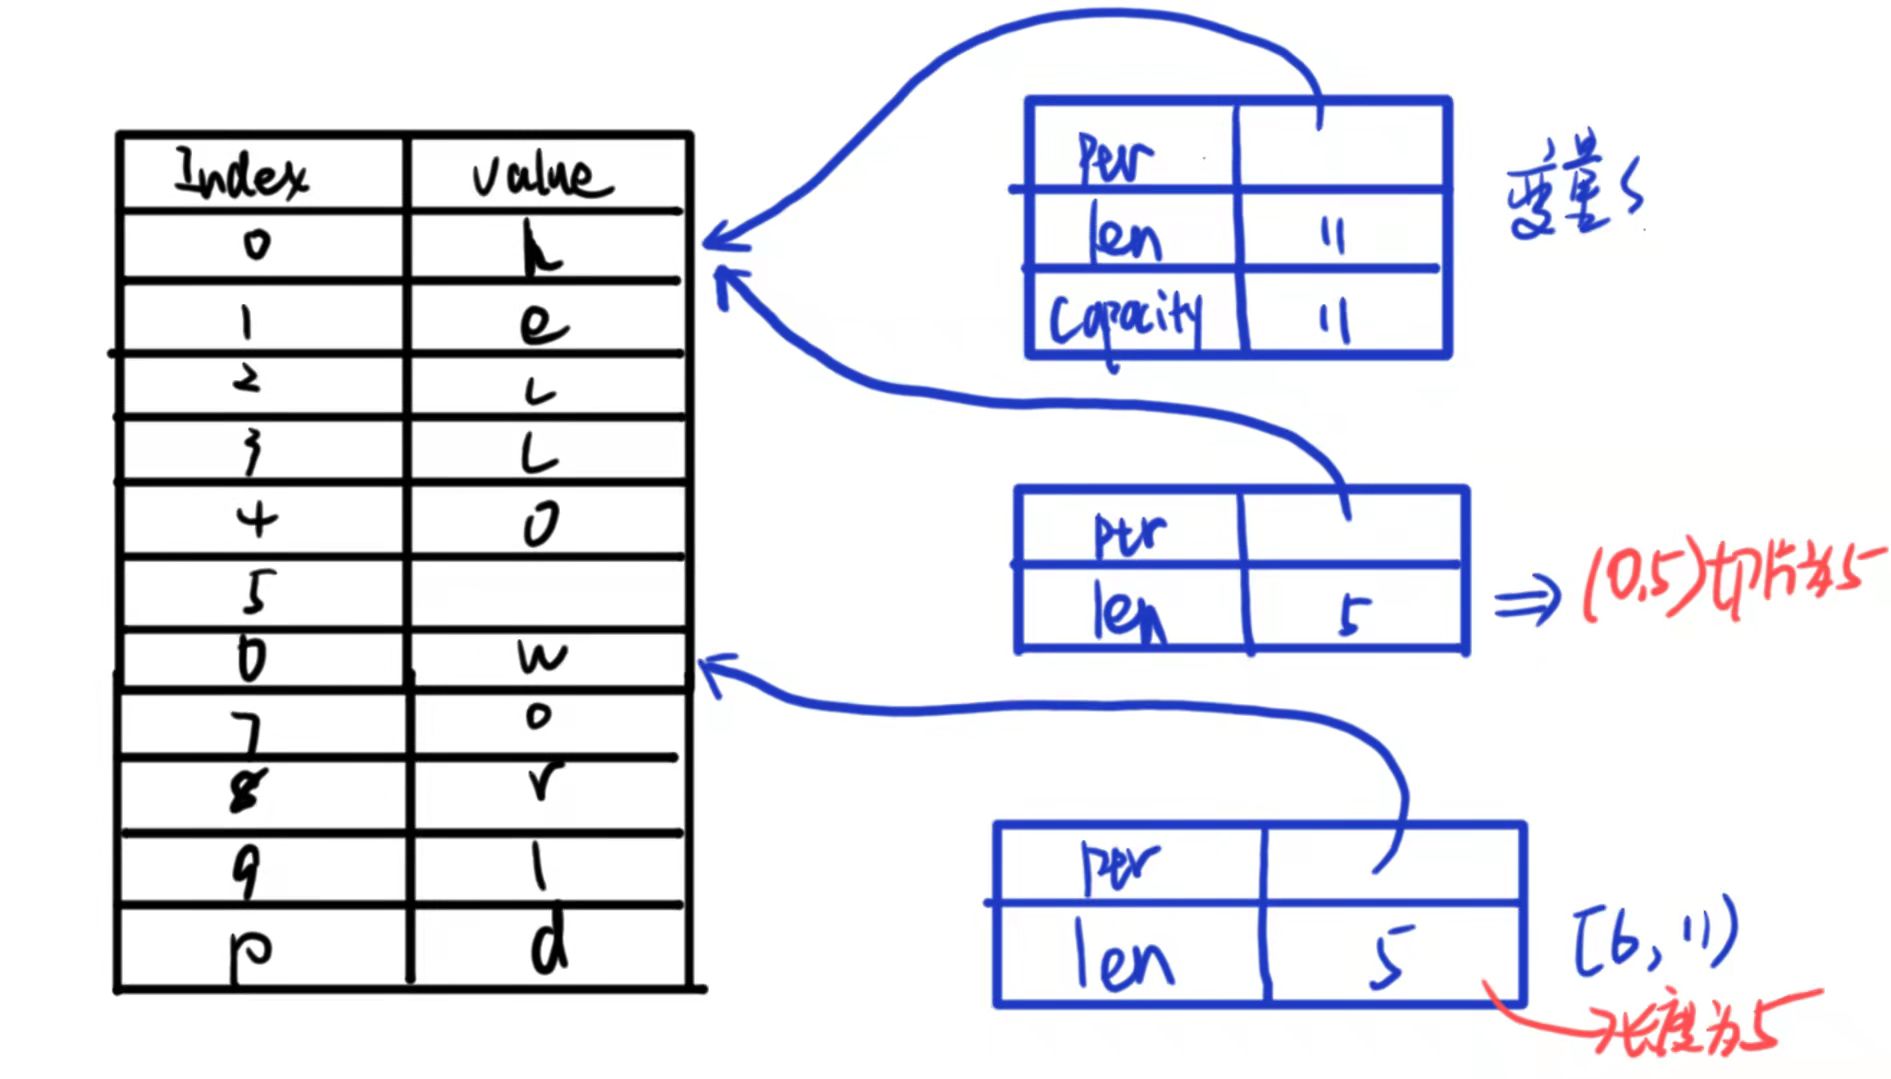 Index value
0 h
1 e
2 L
3 L
4 o
5
6 w
7 o
8 r
9 l
10 d
Ptr
len 11
Capacity 11
变量s
Ptr
len 5
(0,5)切片为5
Ptr
len 5
[6,11)
长度为5